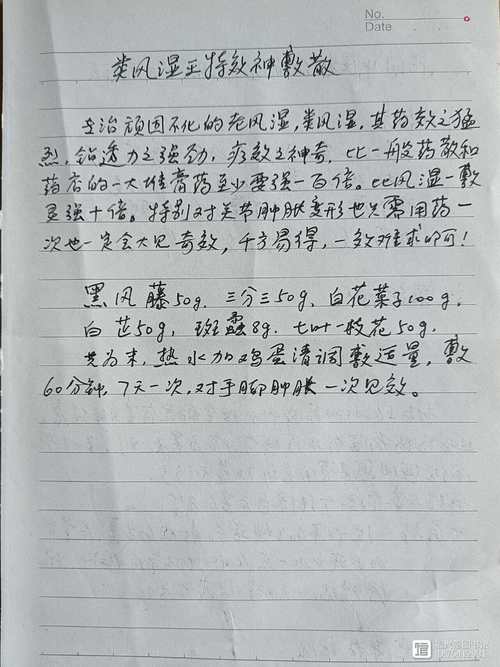 No.
Date
类风湿王特效神敷散
专治顽固不化的老风湿,类风湿,其药效之猛
烈,钻透力之强劲,疗效之神奇,比一般药敷和
药店的一大堆膏药至少要强一百倍。比风湿一敷
灵强十倍。特别对关节肿胀变形也只需用药一
次也一定会大见奇效,千方易得,一效难求的啊!
黑风藤50g.三分三50g、白花菜子100g.
白芷50g,斑蝥8g.七叶一枝花50g.
共为末,热水加鸡蛋清调敷适量,敷
60分钟,7天一次,对手脚肿胀一次见效。